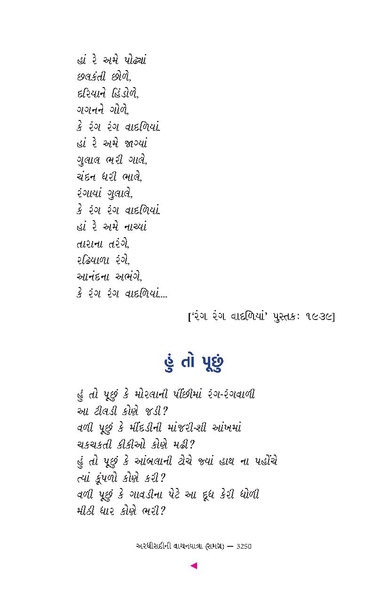 હાં રે અમે પોઢ્યાં
છલકંતી છોળે,
દરિયાને હિંડોળે,
ગગનને ગોળે,
કે રંગ રંગ વાદળિયાં.
હાં રે અમે જાગ્યાં
ગુલાલ ભરી ગાલે,
ચંદન ધરી ભાલે,
રંગાયાં ગુલાલે,
કે રંગ રંગ વાદળિયાં.
હાં રે અમે નાચ્યાં
તારાના તરંગે,
રઢિયાળા રંગે,
આનંદના અભંગે,
કે રંગ રંગ વાદળિયાં....
['રંગ રંગ વાદળિયાં' પુસ્તક: ૧૯૩૯]
હું તો પૂછું
હું તો પૂછું કે મોરલાની પીંછીમાં રંગ-રંગવાળી
આ ટીલડી કોણે જડી?
વળી પૂછું કે મીંદડીની માંજરી-શી આંખમાં
ચકચકતી કીકીઓ કોણે મઢી?
હું તો પૂછું કે આંબલાની ટોચે જ્યાં હાથ ના પહોંચે
ત્યાં કૂંપળો કોણે કરી?
વળી પૂછું કે ગાવડીના પેટે આ દૂધ કેરી ધોળી
મીઠી ધાર કોણે ભરી?
અરધીસદીની વાચનયાત્રા (સમગ્ર) — 3250